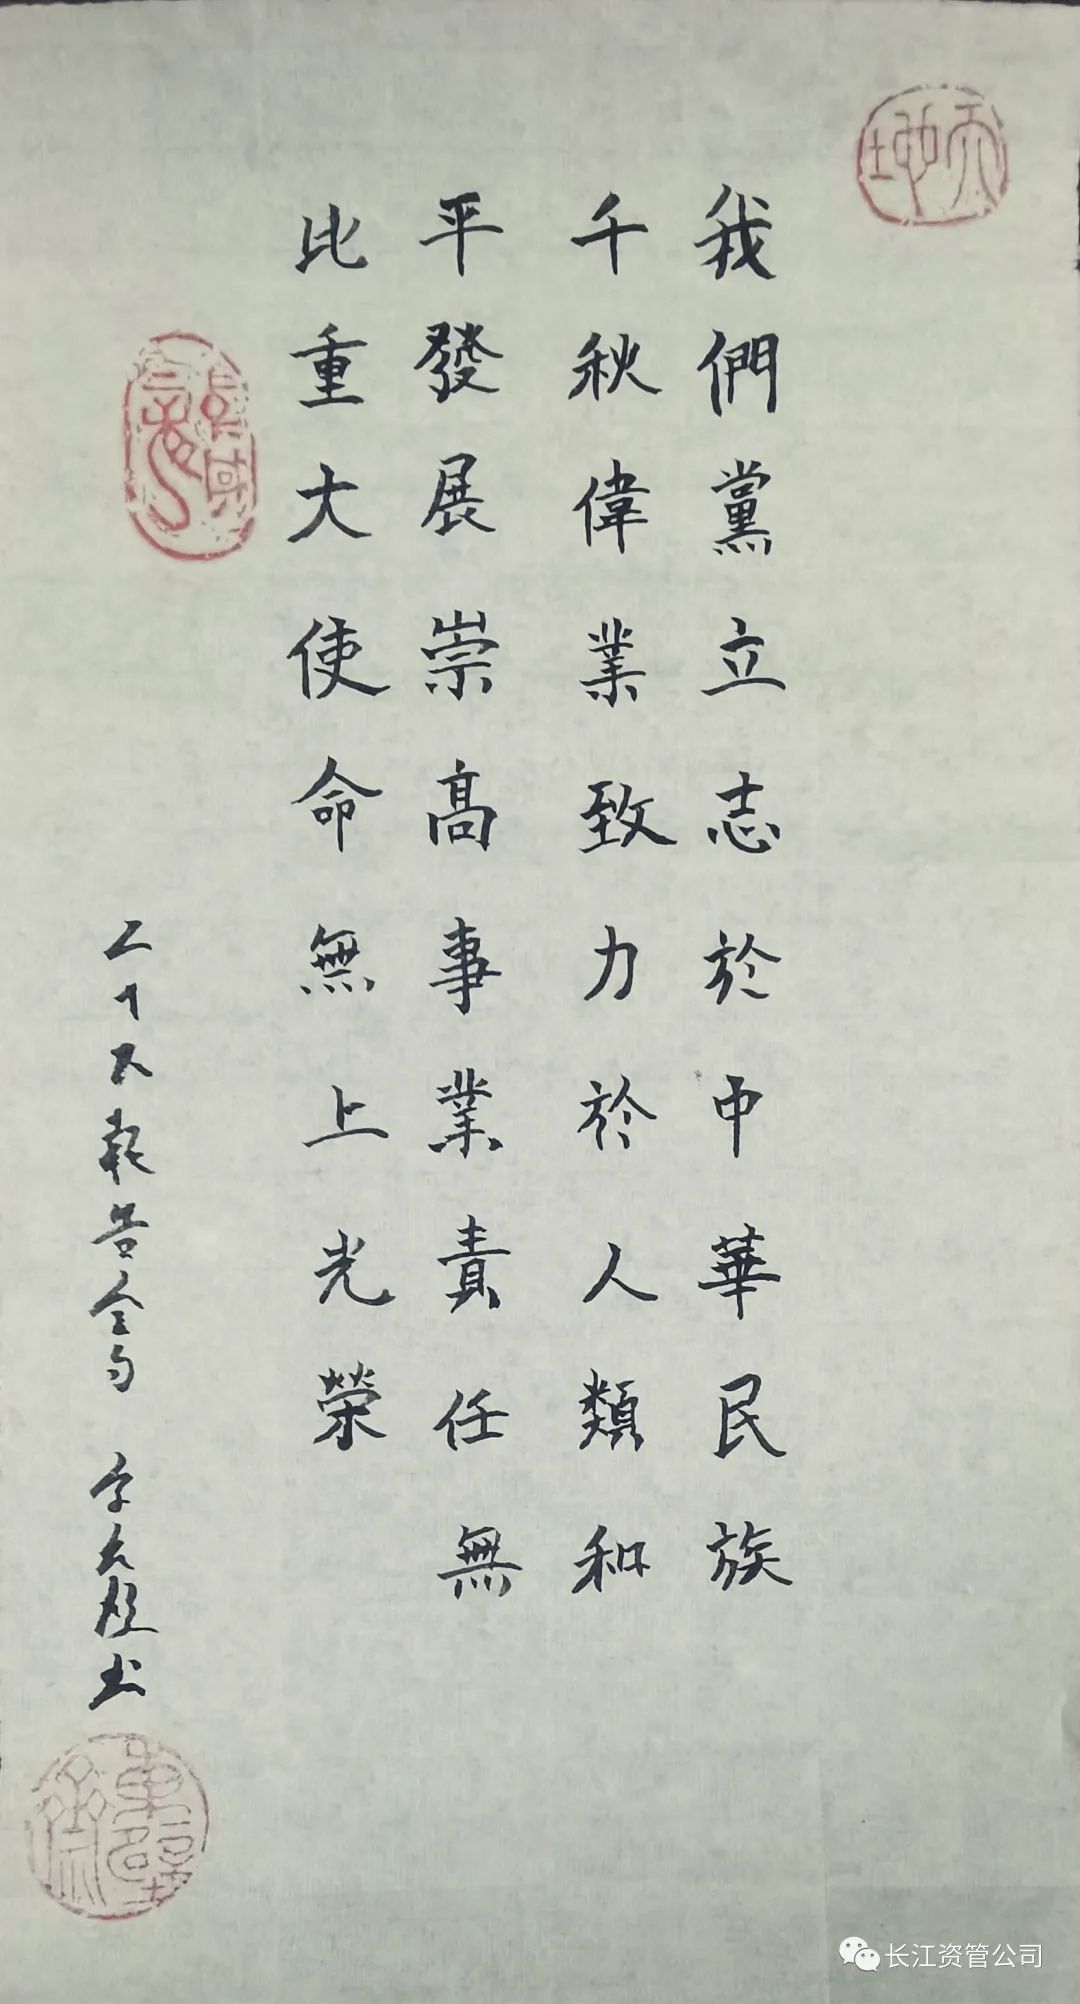 我們黨立志於中華民族
千秋偉業致力於人類和
平發展崇高事業責任無
比重大使命無上光榮
二十大報告金句
書
天地
长江资管公司